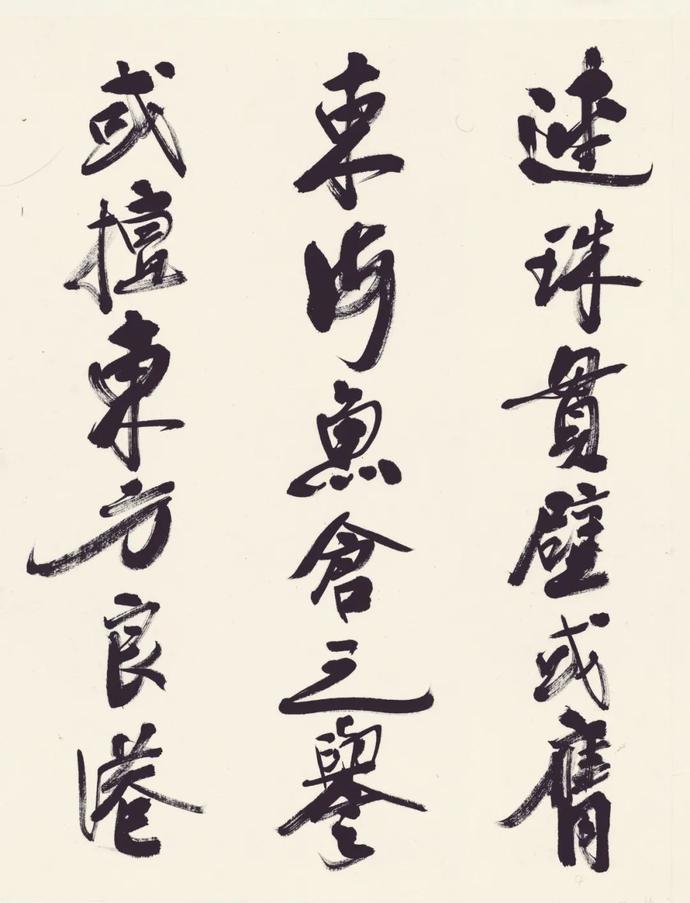 連珠貫璧或膺
東海魚倉之譽
或擅東方良港